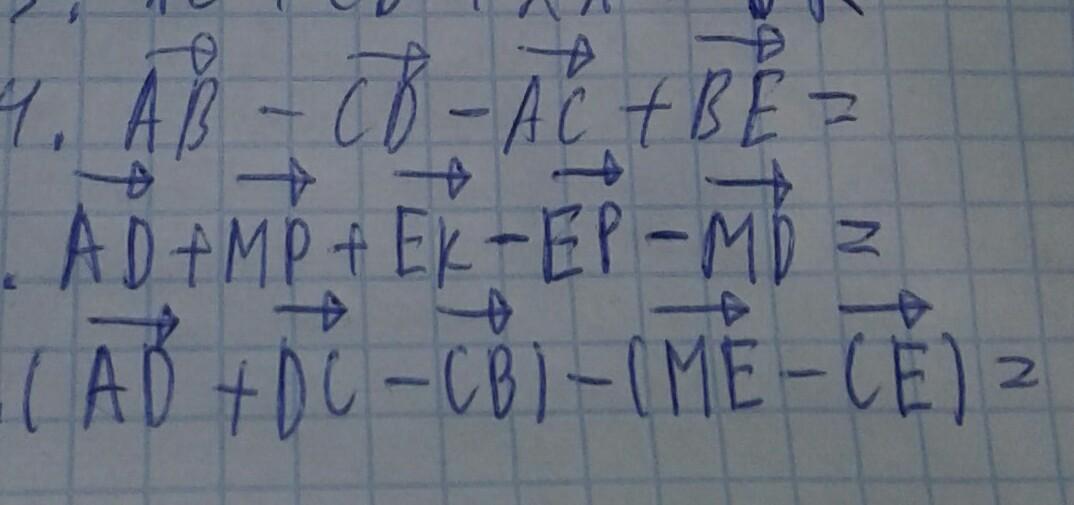 4. AB - CD - AC + BE =
. AD + MP + EK - EP - MD =
. (AD + DC - CB) - (ME - CE) =